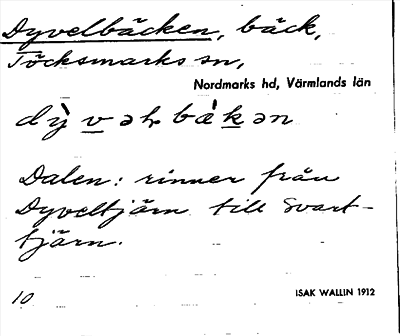 Dyvelbäcken, bäck,
Töcksmarks sn,
Nordmarks hd, Värmlands län
dỳvəɫbäkən
Dalen: rinner från
Dyveltjärn till Svart-
tjärn.
10
ISAK WALLIN 1912